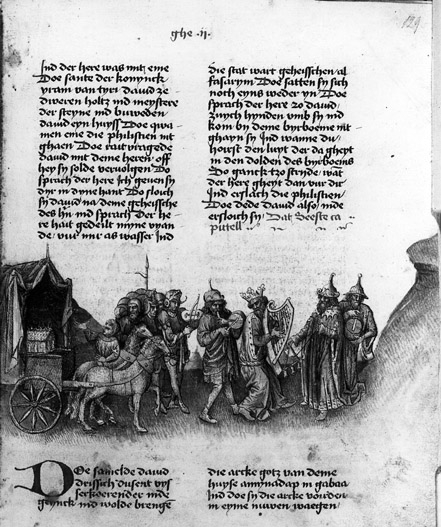 ghe · ij ·
129
Ind der here was mit eme
Doe sante der konynck
yram van tyri david ze
dweren holtz ind meystere
der steyne ind buweden
david eyn huyss Doe qwa
men eme die philistien int
ghaen Doe rait vragede
david mit deme heren · off
hey sy solde vervolgen Do
sprach der here Ich geuen sy
dyr in dyne hant Do sloich
sy david na deme geheissche
des hn ind sprach Der he-
re hait gedeilt myne vyan
de · vur mir as wasser Ind
die stat wart geheisschen al
farasyn Doe satten sy sich
noch eyns weder yn Doe
sprach der here zo david
zuych hynden vmb sy ind
kom by deme byrboeme int
ghayn sy Ind wanne du
hoirst den luyt der da gheyt
in den dolden des byrboems
So ganck tzo stryde · wat
der here gheyt dan vur dir
Ind erslach die philistien
Doe dede david also · inde
ersloich sy · Dat Seeste ca
pittell
Doe samelde david
drissich dusent vys
serkoerender inde
gynck ind wolde brenge
die arcke gotz van deme
huyse amynadap in gabaa
Ind doe sy die arcke voirden
in eyme nuwen waegen